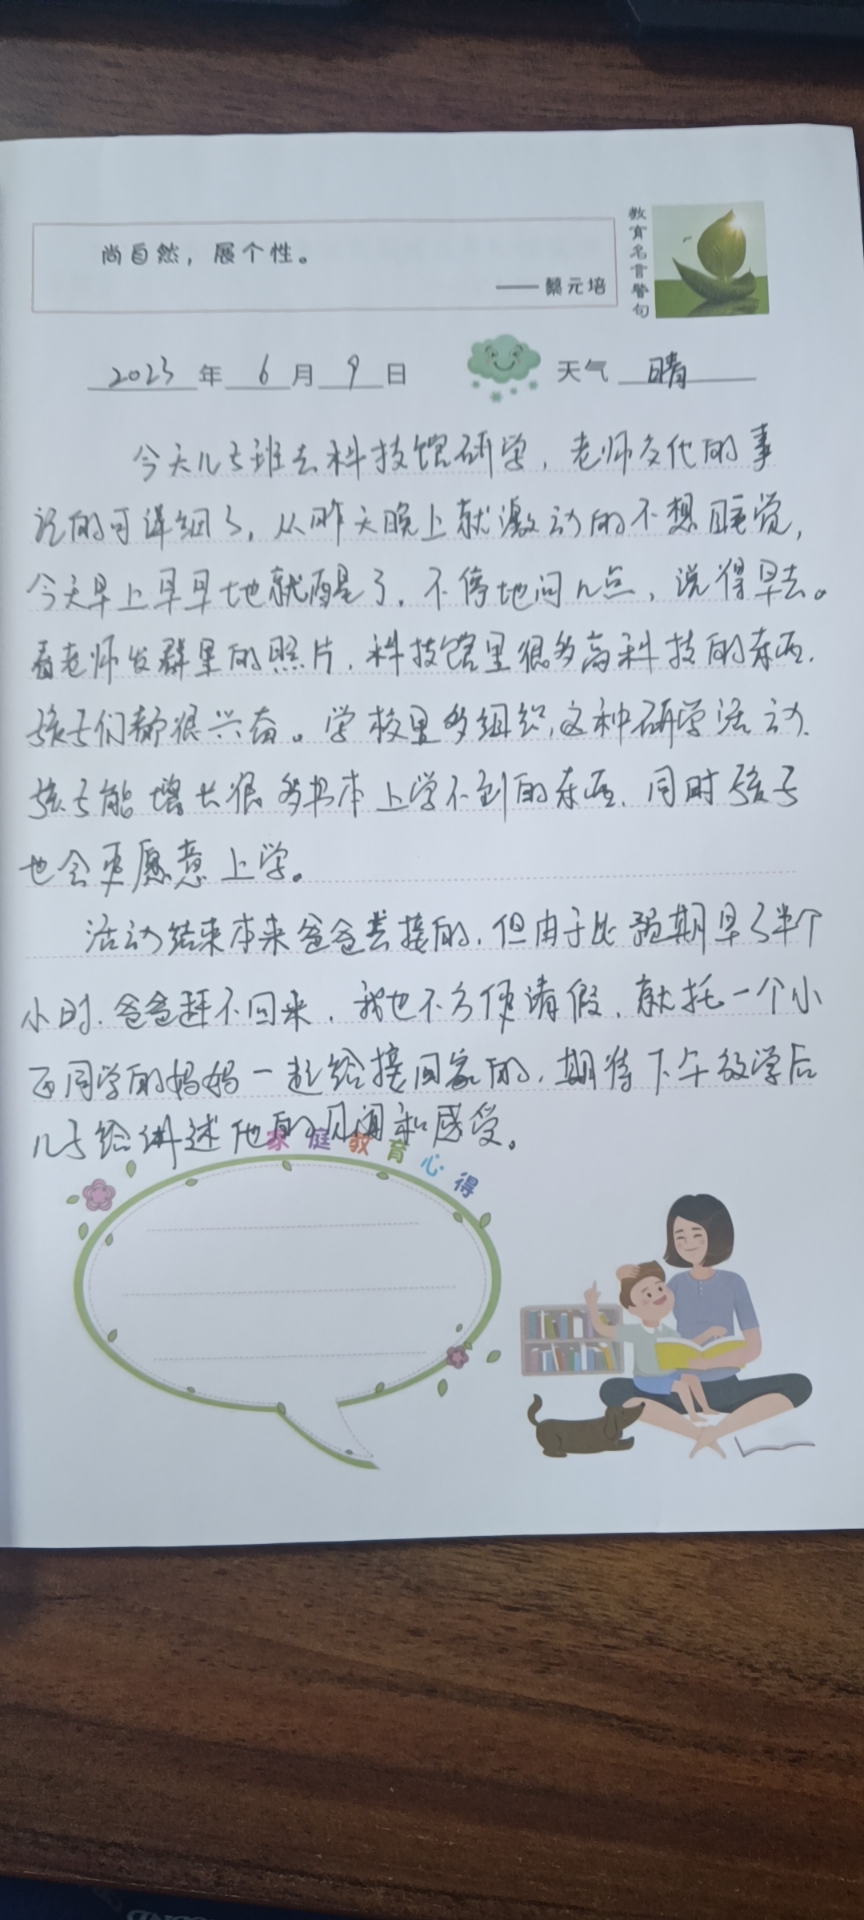 尚自然，展个性。
——蔡元培
教育名言警句
2023年6月9日 天气 晴
今天儿子班去科技馆研学，老师交代的事
记的可详细了，从昨天晚上就激动的不想睡觉，
今天早上早早地就醒了，不停地问几点，说得早去。
看老师发群里的照片，科技馆里很多高科技的东西，
孩子们都很兴奋。学校里多组织这种研学活动，
孩子能增长很多书本上学不到的东西，同时孩子
也会更愿意上学。
活动结束本来爸爸去接的，但由于比预期早了半个
小时，爸爸赶不回来，我也不方便请假，就托一个小
区同学的妈妈一起给接回家的，期待下午放学后
儿子给讲述他的见闻和感受。
家庭教育心得